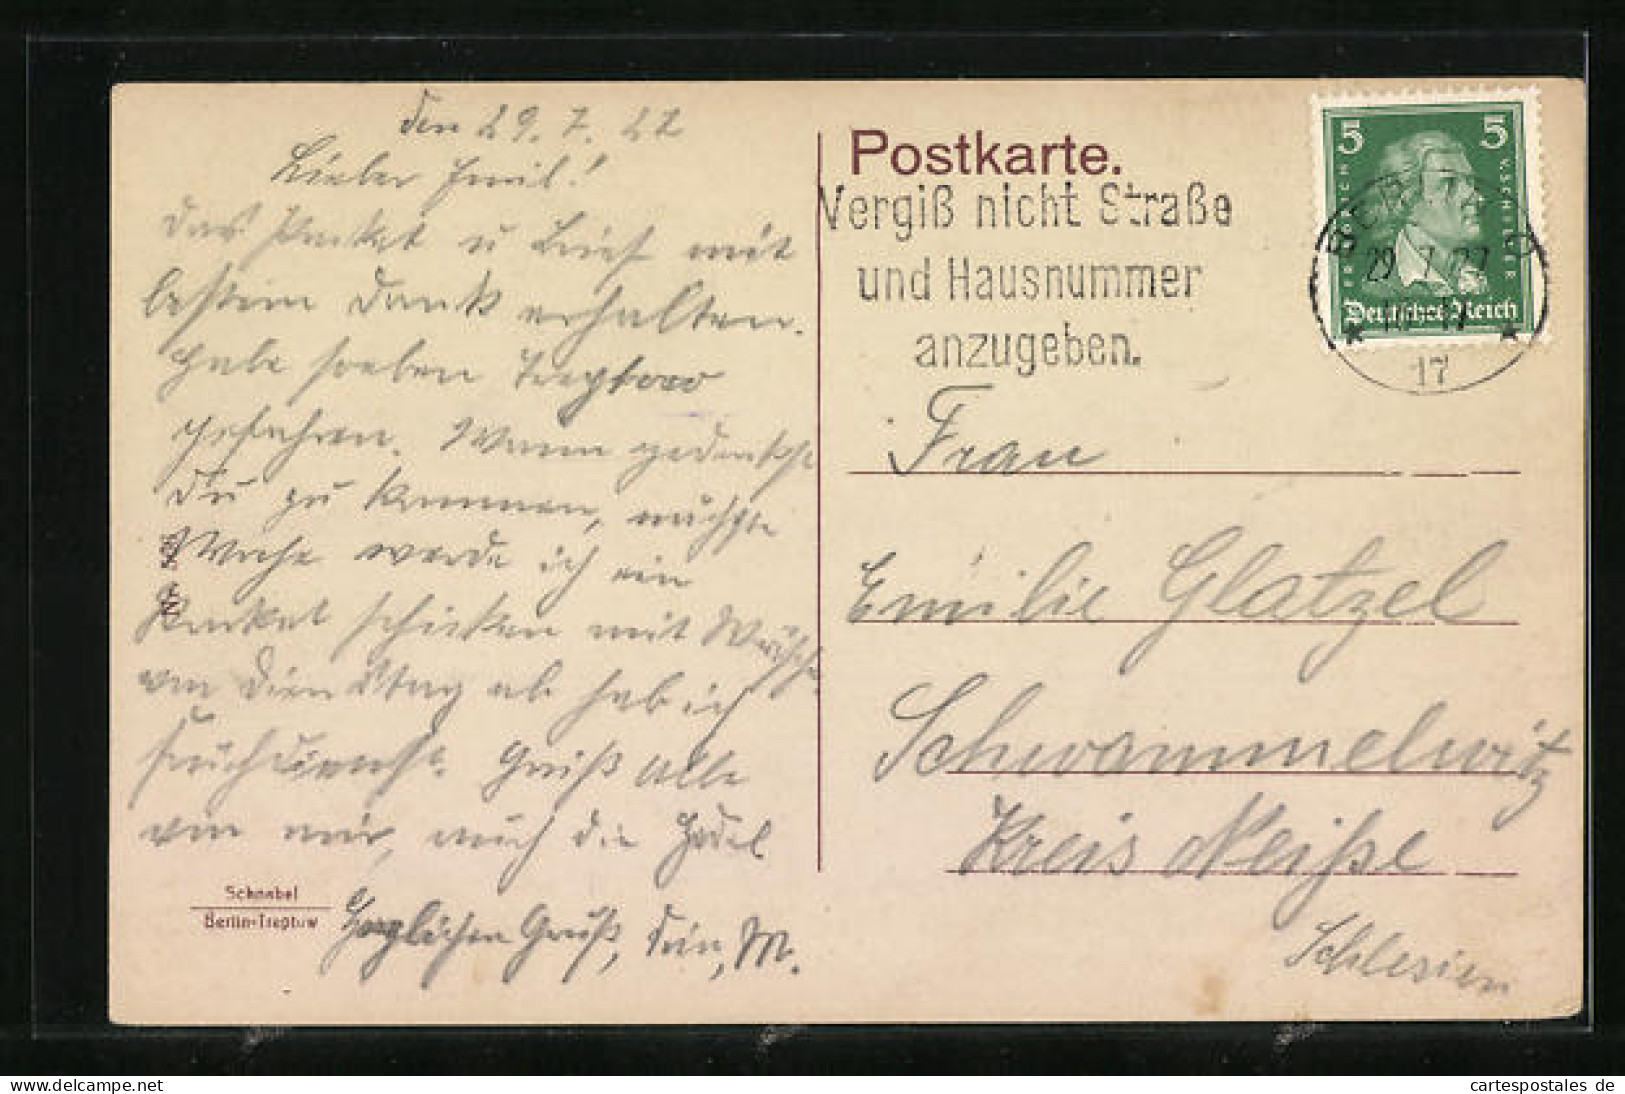 den 29. 7. 27
Lieber Emil!
Das Packet u Brief mit
bestem Dank erhalten.
Habe soeben Treptow
gefahren. Wenn gedenkst
Du zu kommen, nächste
Woche werde ich ein
Packet schicken mit Wäsche
von Dienstag ab hab ich
Frühdienst. Grüß alle
von mir, auch die Hedel
Herzlichen Gruß, Dein, M.
Schnabel
Berlin-Treptow
Postkarte.
Vergiß nicht Straße
und Hausnummer
anzugeben.
5 5
FRIEDRICH V. SCHILLER
Deutsches Reich
BERLIN
29. 7. 27
17
Frau
Emilie Glatzel
Schwammelwitz
Kreis Neiße
Schlesien
www.delcampe.net
cartespostales de